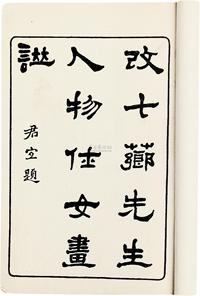 改七薌先生
人物仕女畫
譜
君宜題